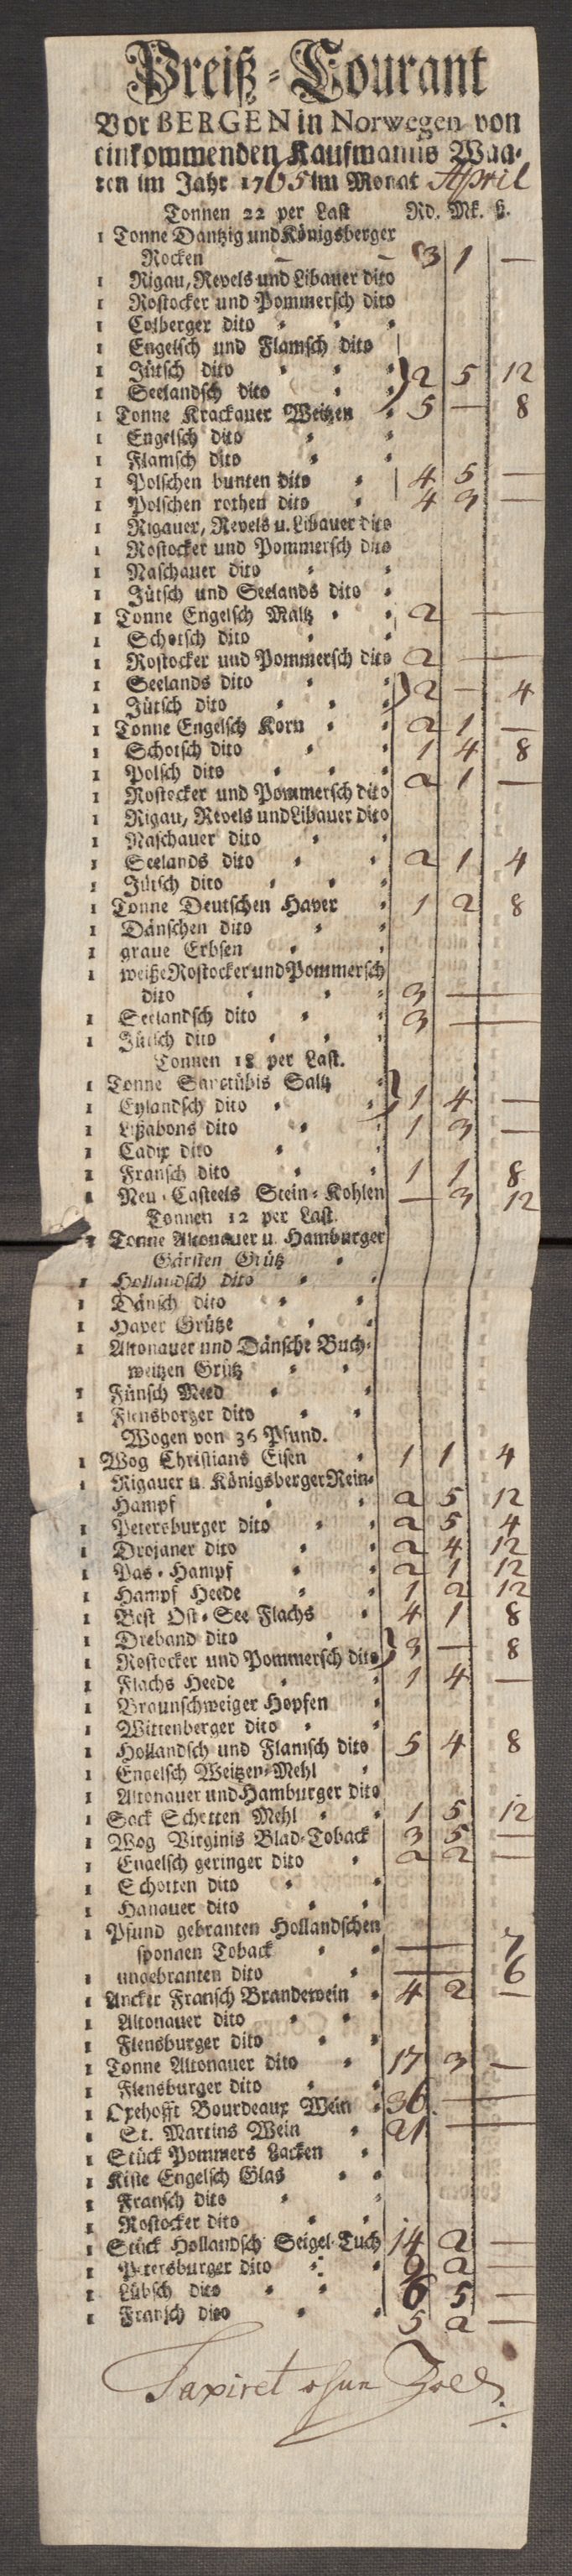 Preiß-Courant
Vor BERGEN in Norwegen von
einkommenden Kaufmanns Waa-
ren im Jahr 1765 im Monat April
Tonnen 22 per Last Rd. Mk. ß.
1 Tonne Dantzig und Königsberger
Rocken — — 3 1 —
1 Rigau, Revels und Libauer dito
1 Rostocker und Pommersch dito
1 Colberger dito
1 Engelsch und Flamsch dito
1 Jütsch dito 2 5 12
1 Seelandsch dito
1 Tonne Krackauer Weitzen 5 — 8
1 Engelsch dito
1 Flamsch dito
1 Polschen bunten dito 4 5 —
1 Polschen rothen dito 4 3 —
1 Rigauer, Revels u. Libauer dito
1 Rostocker und Pommersch dito
1 Naschauer dito
1 Jütsch und Seelands dito
1 Tonne Engelsch Maltz 2 —
1 Schotsch dito
1 Rostocker und Pommersch dito 2 —
1 Seelands dito 2 — 4
1 Jütsch dito
1 Tonne Engelsch Korn 2 1 —
1 Schotsch dito 1 4 8
1 Polsch dito
1 Rostocker und Pommersch dito 2 1 —
1 Rigau, Revels und Libauer dito
1 Naschauer dito
1 Seelands dito 2 1 4
1 Jütsch dito
1 Tonne Deutschen Haver 1 2 8
1 Dänschen dito
1 graue Erbsen
1 weiße Rostocker und Pommersch
dito 3 —
1 Seelandsch dito 3 —
1 Jütsch dito
Tonnen 18 per Last.
1 Tonne Sanctübis Saltz
1 Eylandsch dito 1 4 —
1 Lißabons dito 1 3 —
1 Cadix dito
1 Fransch dito 1 1 8
1 Neu-Casteels Stein-Kohlen — 3 12
Tonnen 12 per Last.
1 Tonne Altonauer u. Hamburger
Gärsten Grütz
1 Hollandsch dito
1 Dänsch dito
1 Haver Grütze
1 Altonauer und Dänsche Buch-
weitzen Grütz
1 Fünsch Meed
1 Flensborger dito
Wogen von 36 Pfund.
1 Wog Christians Eisen 1 1 4
1 Rigauer u. Königsberger Rein-
Hampf 2 5 12
1 Petersburger dito 2 5 4
1 Drojaner dito 2 4 12
1 Pas-Hampf 2 1 12
1 Hampf Heede 1 2 12
1 Best Ost-See Flachs 4 1 8
1 Dreband dito
1 Rostocker und Pommersch dito 3 — 8
1 Flachs Heede 1 4 —
1 Braunschweiger Hopfen
1 Wittenberger dito
1 Hollandsch und Flamsch dito 5 4 8
1 Engelsch Weitzen-Mehl
1 Altonauer und Hamburger dito
1 Sack Schetten Mehl 1 5 12
1 Wog Virginis Blad-Toback 3 5 —
1 Engelsch geringer dito 2 2 —
1 Schotten dito
1 Hanauer dito
1 Pfund gebranten Hollandschen
sponnen Toback — 7
1 ungebranten dito — 6
1 Ancker Fransch Brandewein 4 2 —
1 Altonauer dito
1 Flensburger dito
1 Tonne Altonauer dito 17 3 —
1 Flensburger dito
1 Oxehofft Bourdeaux Wein 36 —
1 St. Martins Wein 21 —
1 Stück Pommers Lacken
1 Kiste Engelsch Glas
1 Fransch dito
1 Rostocker dito
1 Stück Hollandsch Seigel-Tuch 14 2 —
1 Petersburger dito 9 2 —
1 Lübsch dito 6 5 —
1 Fransch dito 5 2 —
Taxiret ohne Zoll